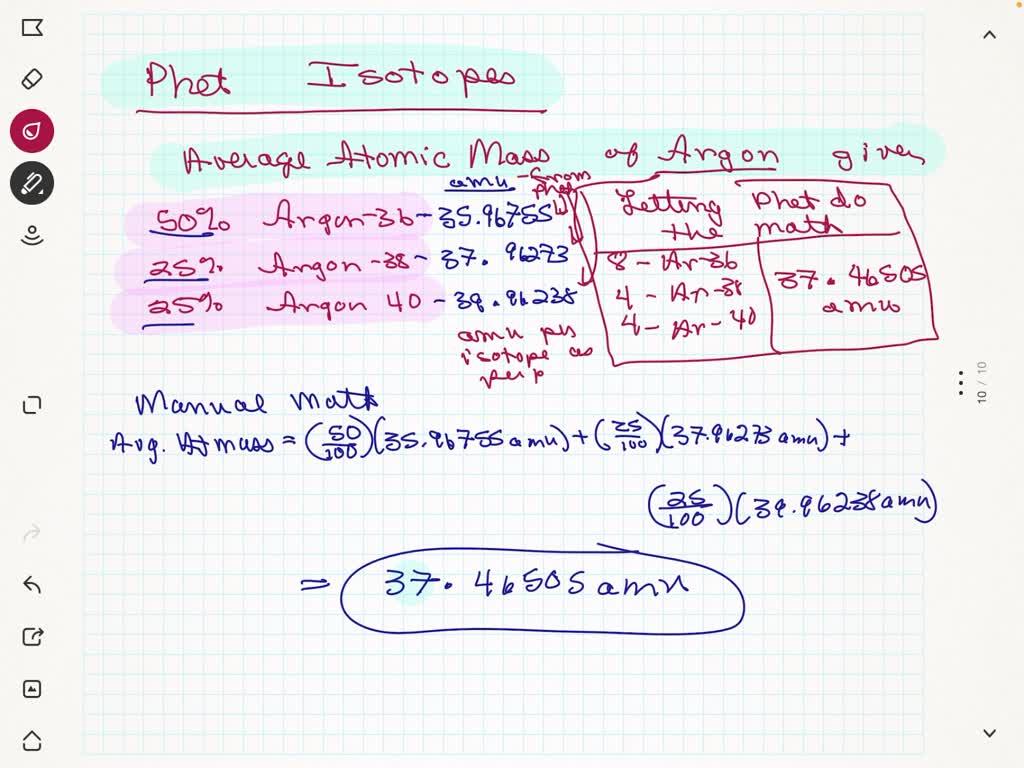 Phet Isotopes
Average Atomic Mass of Argon given
amu - from phet
50% Argon-36 - 35.96755
25% Argon-38 - 37.96273
25% Argon 40 - 39.96238
amu per
isotope as
per p
Letting Phet do
the math
8 - Ar-36
4 - Ar-38
4 - Ar-40
37.46505
amu
Manual Math
Avg. At mass = (50/100)(35.96755 amu) + (25/100)(37.96273 amu) +
(25/100)(39.96238 amu)
= 37.46505 amu
10 / 10